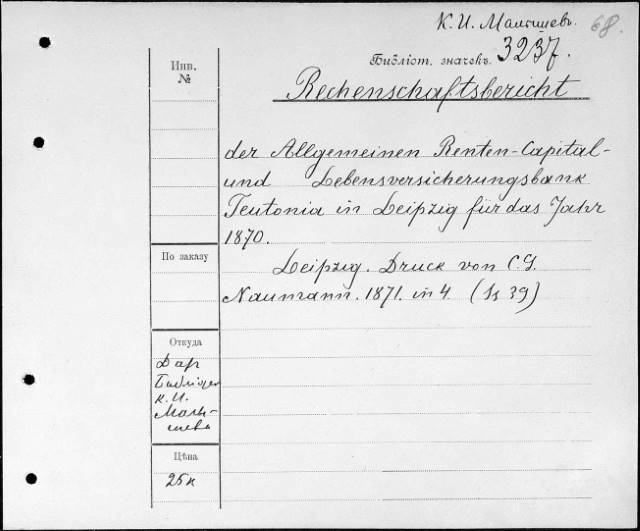 К. И. Малышевъ.
68.
Библіот. значекъ. 3237.
Rechenschaftsbericht
Инв.
№
der Allgemeinen Renten-Capital-
und Lebensversicherungsbank
Teutonia in Leipzig für das Jahr
1870.
По заказу
Leipzig. Druck von C. G.
Naumann. 1871. in 4. (S 39)
Откуда
Дар
К. И.
Малы-
шева
Цѣна
25 к